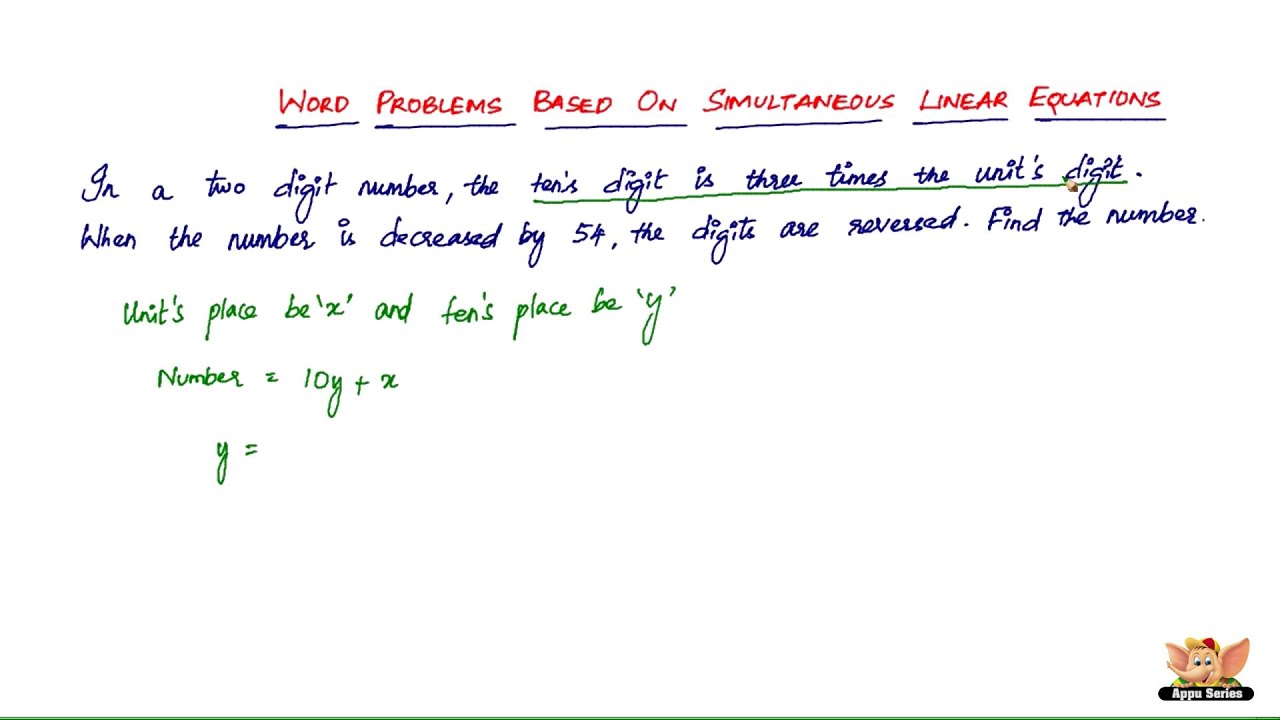 WORD PROBLEMS BASED ON SIMULTANEOUS LINEAR EQUATIONS
In a two digit number, the ten's digit is three times the unit's digit.
When the number is decreased by 54, the digits are reversed. Find the number.
Unit's place be 'x' and ten's place be 'y'
Number = 10y + x
y =
Appu Series